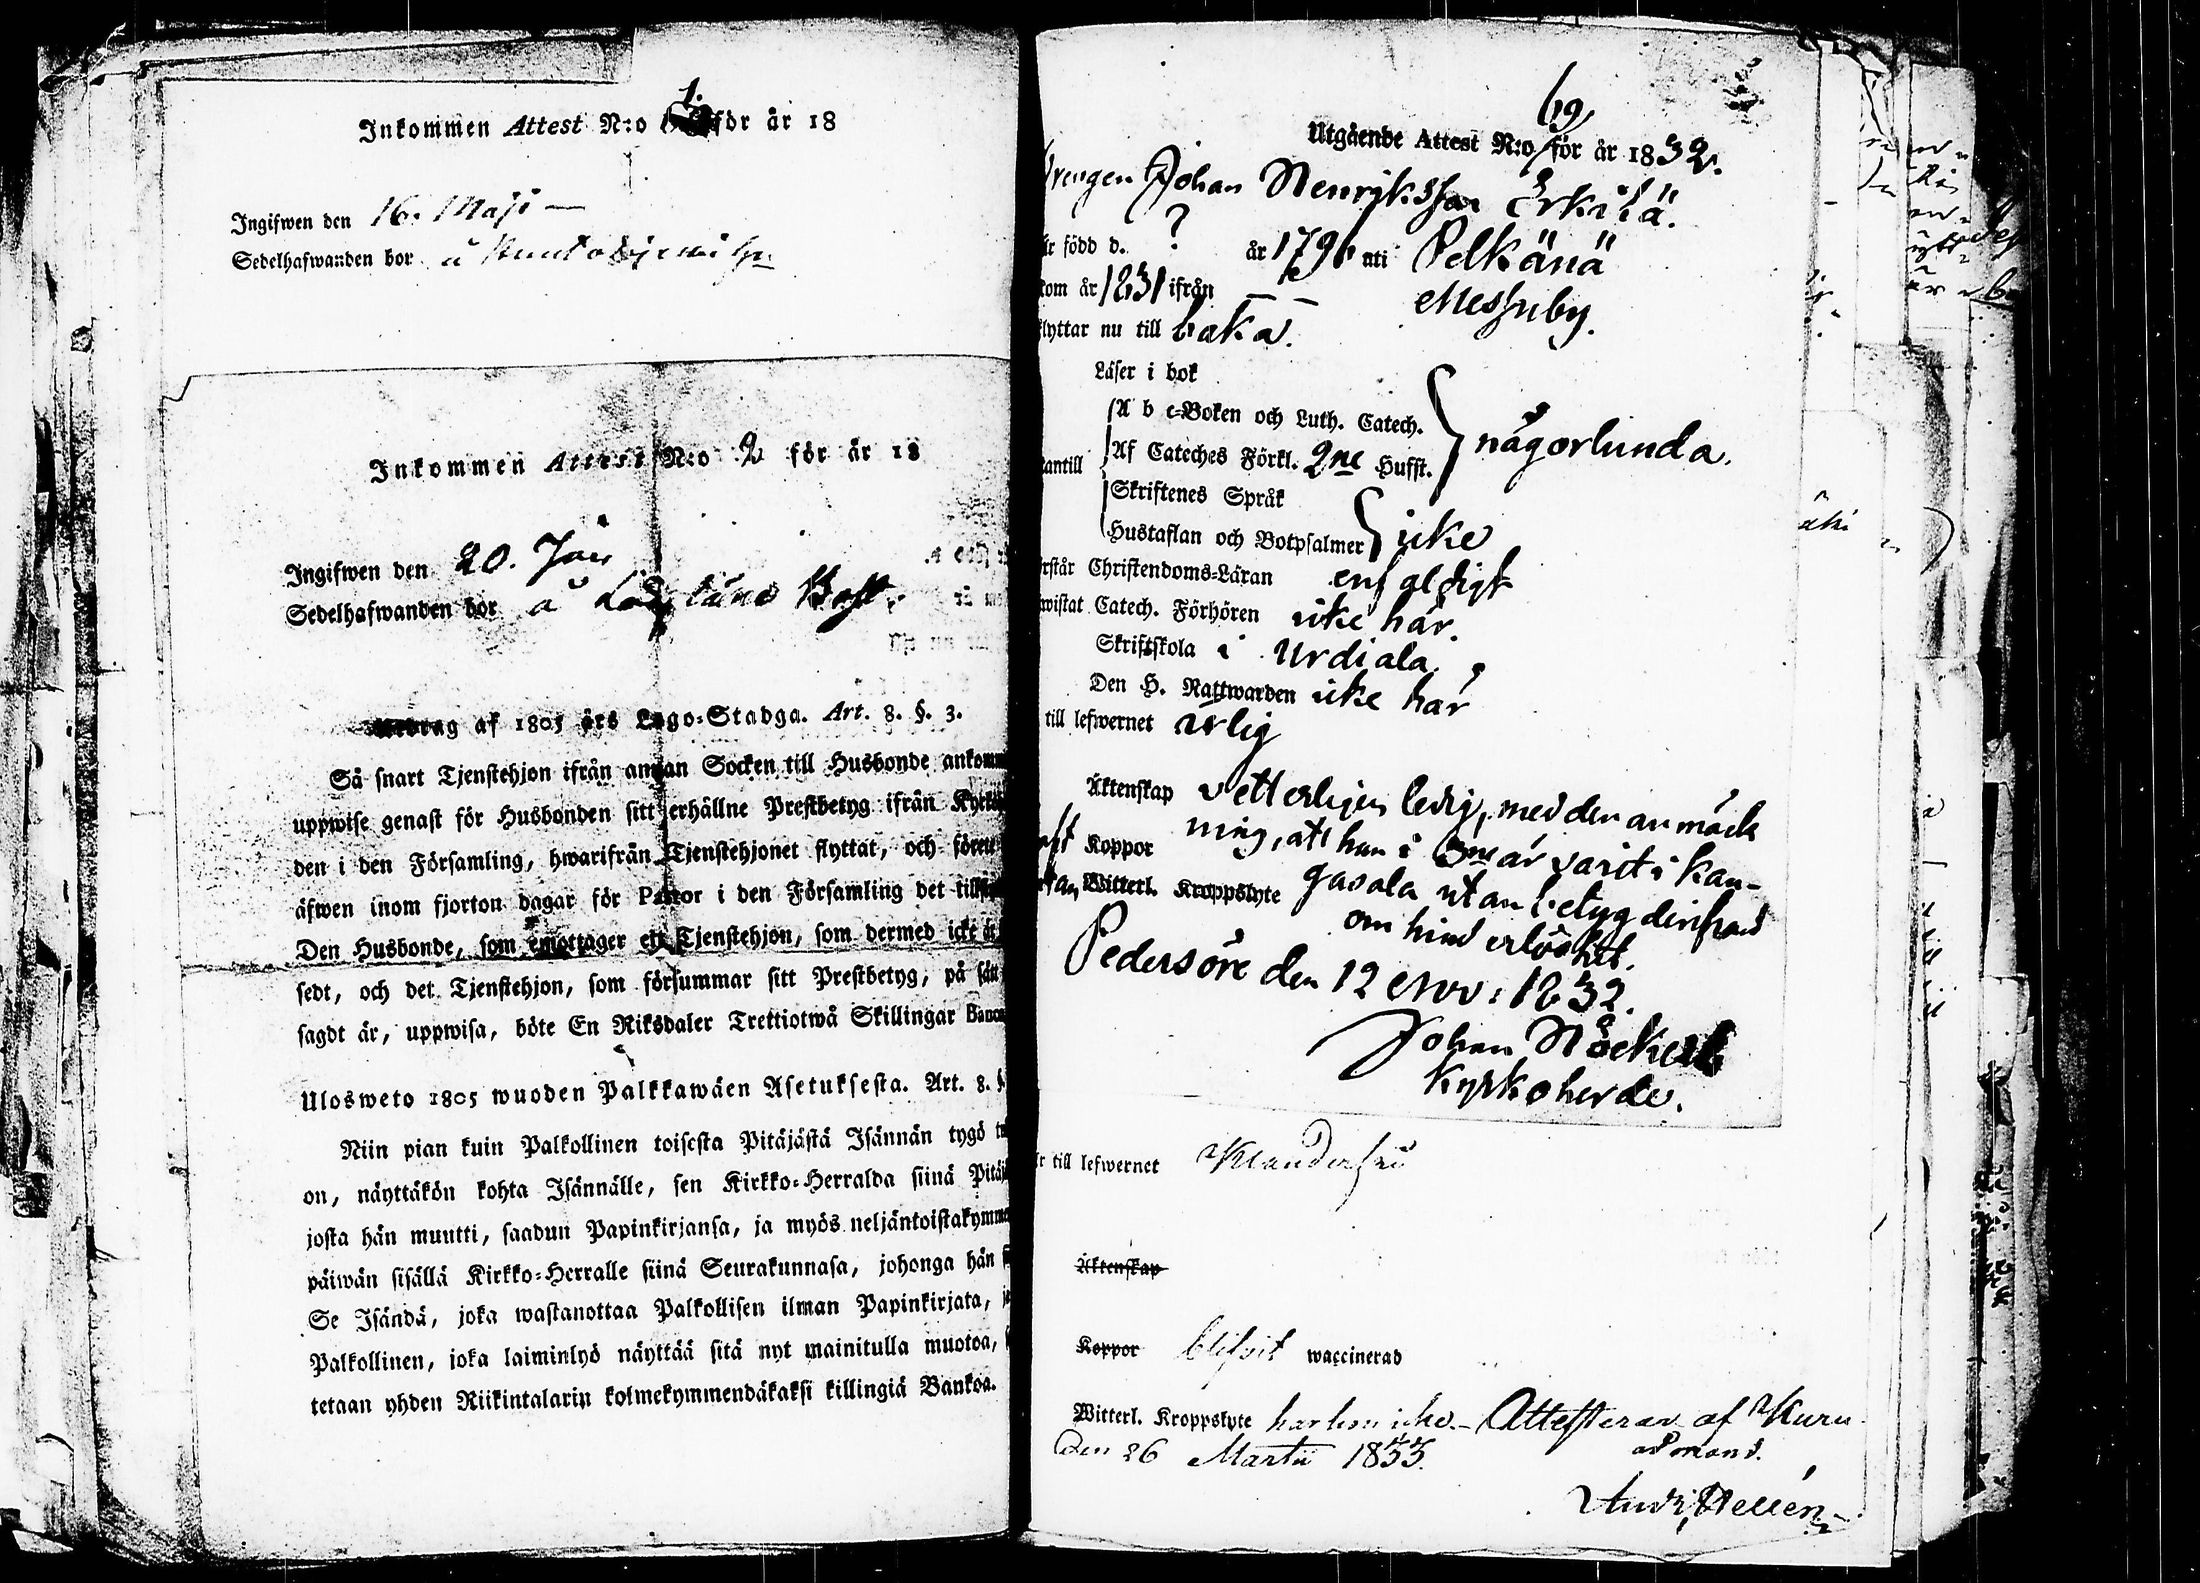 Inkommen Attest N:o 1. för år 18
Ingifwen den 16. Maji —
Sedelhafwanden bor å
Inkommen Attest N:o 2 för år 18
Ingifwen den 20. Jan
Sedelhafwanden bor å
Utdrag af 1805 års Lego-Stadga. Art. 8. §. 3.
Så snart Tjenstehjon ifrån annan Socken till Husbonde ankomm
uppwise genast för Husbonden sitt erhällne Prestbetyg ifrån
den i den Församling, hwarifrån Tjenstehjonet flyttat, och
äfwen inom fjorton dagar för Pastor i den Församling det
Den Husbonde, som emottager ett Tjenstehjon, som dermed icke
sedt, och det Tjenstehjon, som försummar sitt Prestbetyg, på sätt
sagdt är, uppwisa, böte En Riksdaler Trettiotwå Skillingar Banco
Ulosweto 1805 wuoden Palkkawäen Asetuksesta. Art. 8. §
Niin pian kuin Palkollinen toisesta Pitäjästä Isännän tygö
on, näyttäkön kohta Isännälle, sen Kirkko-Herralda siinä Pitäj
josta hän muutti, saadun Papinkirjansa, ja myös neljäntoistakymm
päiwän sisällä Kirkko-Herralle siinä Seurakunnasa, johonga hän
Se Isändä, joka wastanottaa Palkollisen ilman Papinkirjata,
Palkollinen, joka laiminlyö näyttää sitä nyt mainitulla muotoa,
tetaan yhden Riikintalarin kolmekymmendäkaksi killingiä Bankoa.
Utgående Attest N:o 69 för år 1832.
rengen Johan Henriksson Erkilä.
är född d. ? år 1796 uti Pelkänä
kom år 1831 ifrån — — Messuby.
flyttar nu till baka.
Läser i bok
A b c-Boken och Luth. Catech.
antill Af Cateches Förkl. 2ne Hufst. någorlunda.
Skriftenes Språk
Hustaflan och Botpsalmer icke
rstår Christendoms-Läran enfaldigt
wistat Catech. Förhören icke här.
Skriftskola i Urdiala.
Den H. Nattwarden icke här
till lefwernet ärlig
Äktenskap vetterligen ledig, med den anmärk
ning, att han i 3ne år varit i Kan-
Koppor
gasala utan betyg derifrån
Witterl. Kroppslyte
om hinderlöshet.
Pedersöre den 12 Nov: 1832.
Johan Höckert
Kyrkoherde.
r till lefwernet Klanderfri
Äktenskap
Koppor blifvit waccinerad
Witterl. Kroppslyte har hon icke. – Attesterar af Kuru
den 26 Martii 1833. ad mand.
Hellén